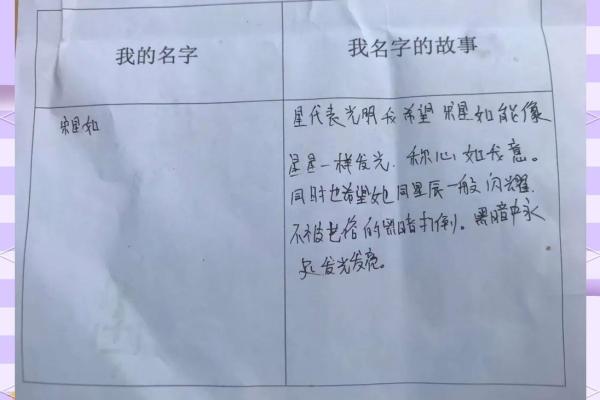 我的名字
我名字的故事
宋星如
星代表光明我希望宋星如能像
星星一样发光.称心如我意。
同时也希望她同星辰一般闪耀.
不被世俗的黑暗打倒。黑暗中永
远发光发亮。